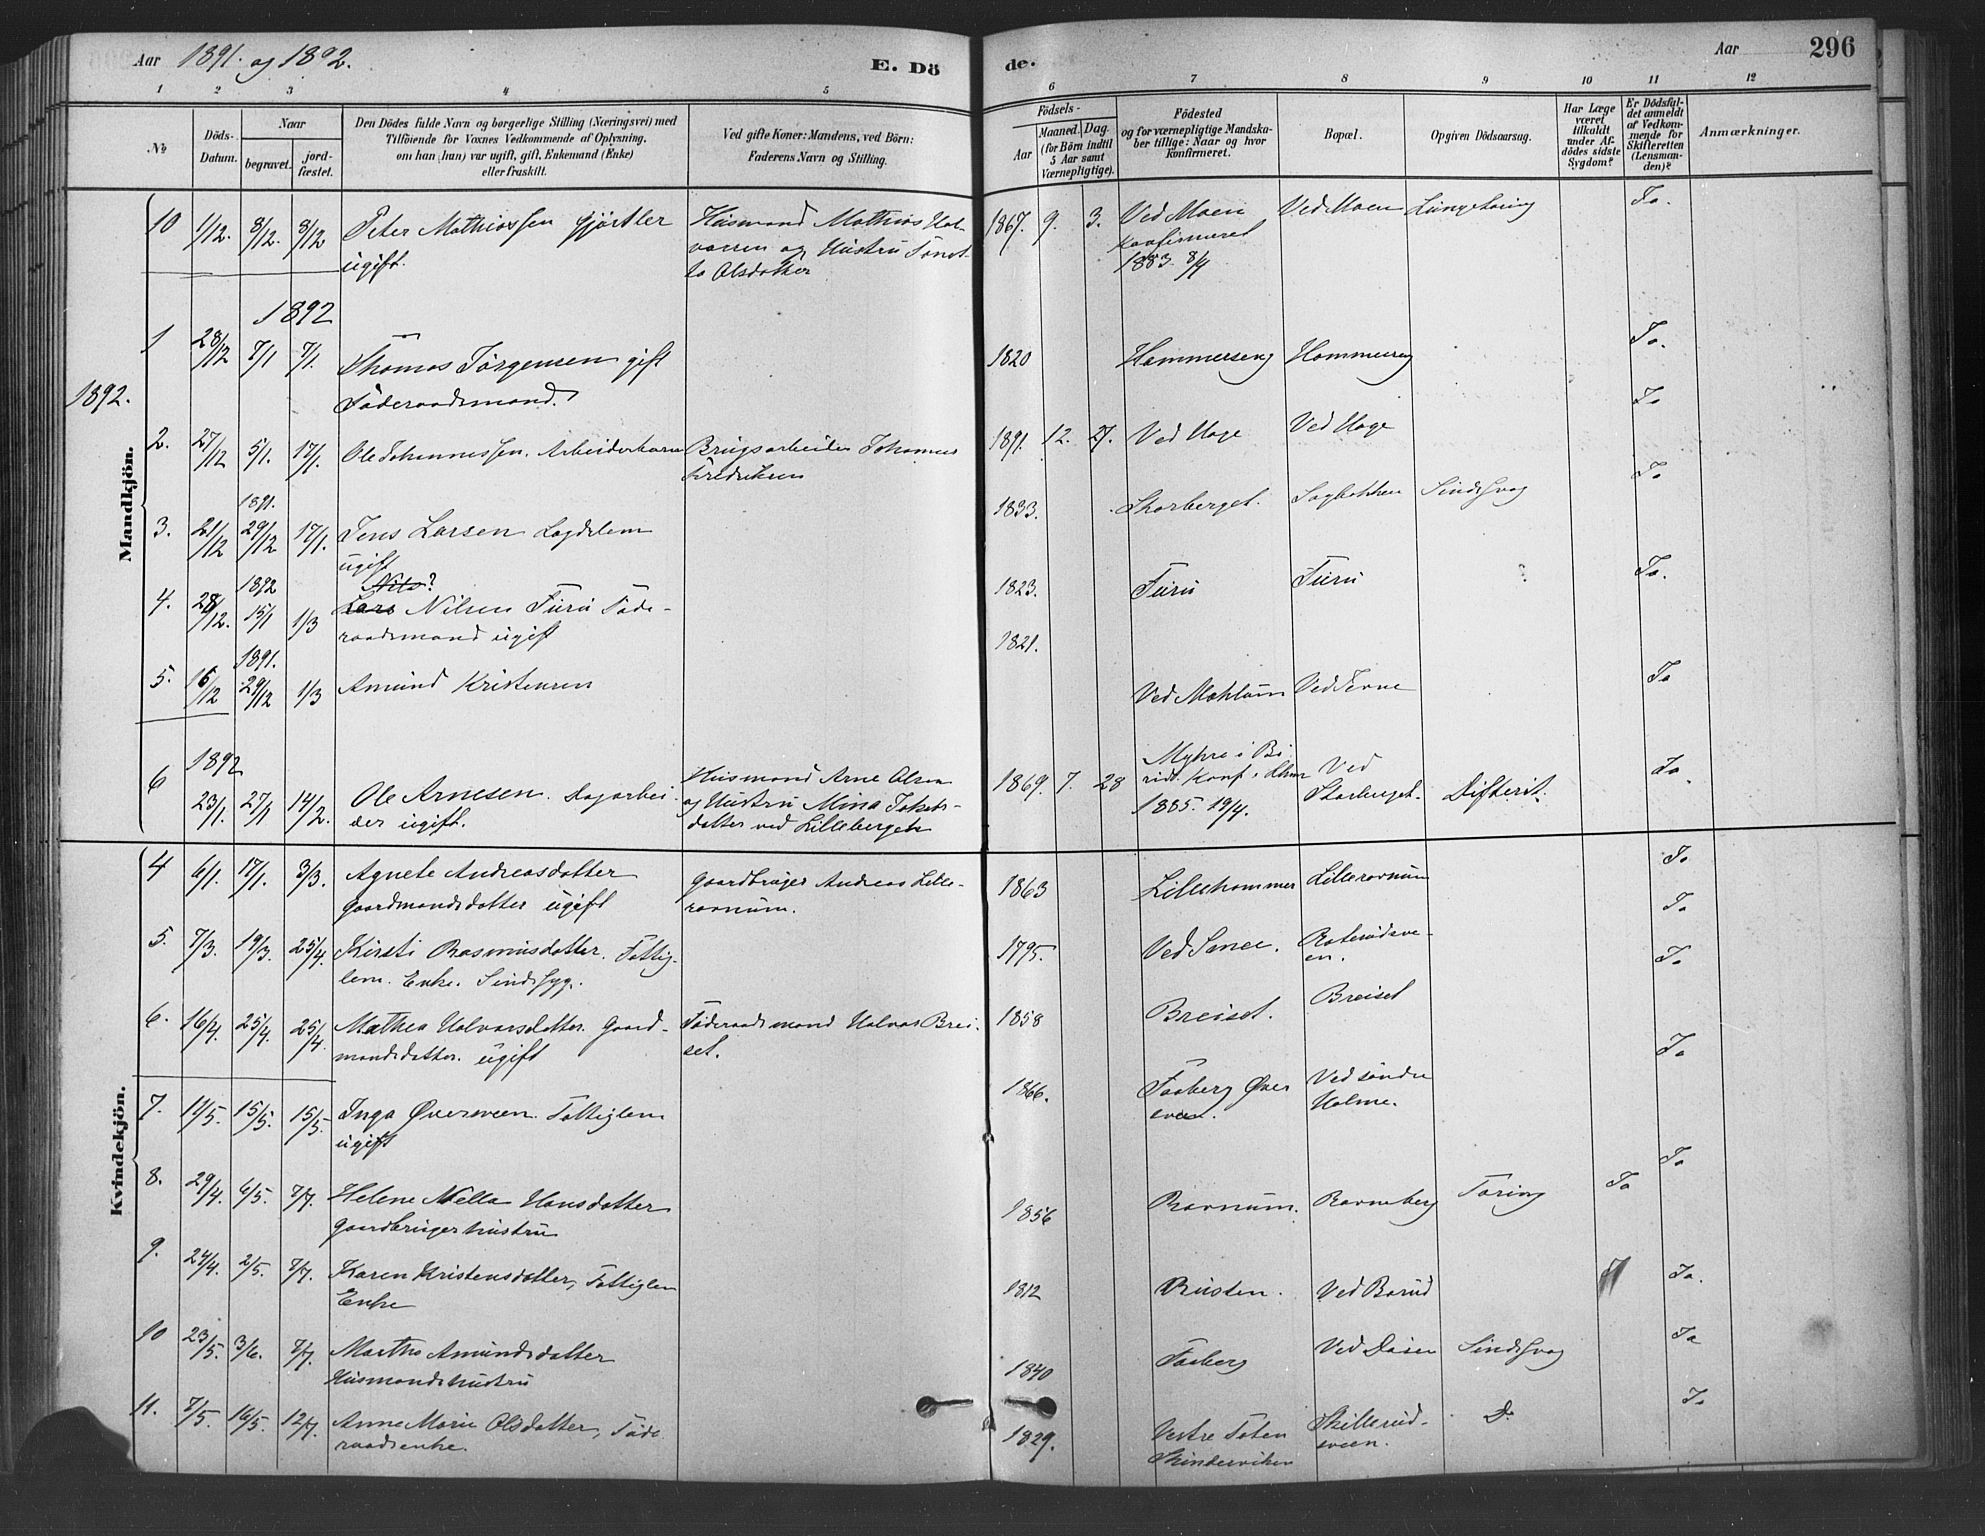 Aar 1891. og 1892.
E. Dö
de.
Aar
296
1 2 3 4 5 6 7 8 9 10 11 12
No
Döds-Datum.
Naar
begravet.
jord-fæstet.
Den Dödes fulde Navn og borgerlige Stilling (Næringsvei) med
Tilföiende for Voxnes Vedkommende af Oplysning,
om han (hun) var ugift, gift, Enkemand (Enke)
eller fraskilt.
Ved gifte Koner: Mandens, ved Börn:
Faderens Navn og Stilling.
Födsels-
Aar
Maaned. Dag.
(for Börn indtil
5 Aar samt
Værnepligtige).
Födested
og for værnepligtige Mandska-
ber tillige: Naar og hvor
konfirmeret.
Bopæl.
Opgiven Dödsaarsag.
Har Læge
været
tilkaldt
under Af-
dödes sidste
Sygdom?
Er Dödsfal-
det anmeldt
af Vedkom-
mende for
Skifteretten
(Lensman-
den)?
Anmærkninger.
Mandkjön.
10 1/12. 8/12. 8/12 Peter Mathiassen Gjörtler
ugift.
Husmand Mathias Hal-
varsen og Hustru
Olsdatter
1867. 9. 3. Ved Moen
konfirmeret
1883. 8/4
Ved Moen
Ja.
1892
1892.
1 28/12 7/1 7/1. Thomas Jörgensen gift
Föderaadsmand.
1820 Hammerseng Hammerseng Ja.
2. 27/12 5/1. 17/1. Ole Johannessen. Arbeiderbarn
Brugsarbeider Johannes
Fredriksen
1891. 12. 27. Ved Hage Ved Hage Ja
1891.
3. 21/12 29/12 17/1. Jens Larsen Lagdslem
ugift
1833. Storberget. Sagbakken Sindssvag Ja
1892
Nils?
4. 28/12. 15/1 1/3 Lars Nilsen Furu Föde-
raadsmand ugift
1823. Furu Furu Ja.
1821.
1891.
5. 16/12 29/12 1/3 Amund Kristensen
Ved Mahlum Ved Jerne Ja
1892
6 23/1. 27/1 14/2. Ole Arnesen. Dagarbei-
der ugift.
Husmand Arne Olsen
og Hustru Mina Jakobs-
datter ved Lilleberget
1869. 7. 28 Myhre i Bi
ridt. Konf. i Lhmr
1885. 19/4.
Ved
Storberget. Difterit. Ja.
Kvindekjön.
4 6/1. 17/1. 3/3. Agnete Andreasdatter
Gaardmandsdatter ugift
Gaardbruger Andreas Lille-
ravnum.
1863 Lillehammer Lilleravnum Ja
Ja
5. 7/3. 19/3. 25/4. Kirsti Rasmusdatter. Fattig-
lem. Enke. Sindssyg.
1795. Ved
Ja
6. 16/4. 25/4. 25/4 Mathea Halvorsdatter. Gaard-
mandsdatter. ugift
Föderaadsmand Halvor Brei-
set.
1858 Breiset. Breiset
Ja
7. 11/5. 15/5. 15/5. Inga Øversveen. Fattiglem
ugift
1866. Faaberg Øver
sveen.
Ved söndre
Holme.
Ja
8. 29/4. 6/5. 7/7. Helene Mella Hansdatter
Gaardbrugerhustru
1856 Ravnum. Ravneberg Tæring Ja
9. 24/4. 2/5. 7/7. Karen Kristensdatter, Fattiglem
Enke
1812 Rusten. Ved Borud Ja.
10 23/5. 3/6. 7/7. Marthe Amundsdatter
Husmandshustru
1840 Faaberg Ved Dasen Sindssvag Ja
11. 7/5. 16/5. 12/7. Anne Marie Olsdatter, Föde
raadsenke.
1829. Vestre Toten
Skindervïken
Skillerud-
sveen.
D. Ja